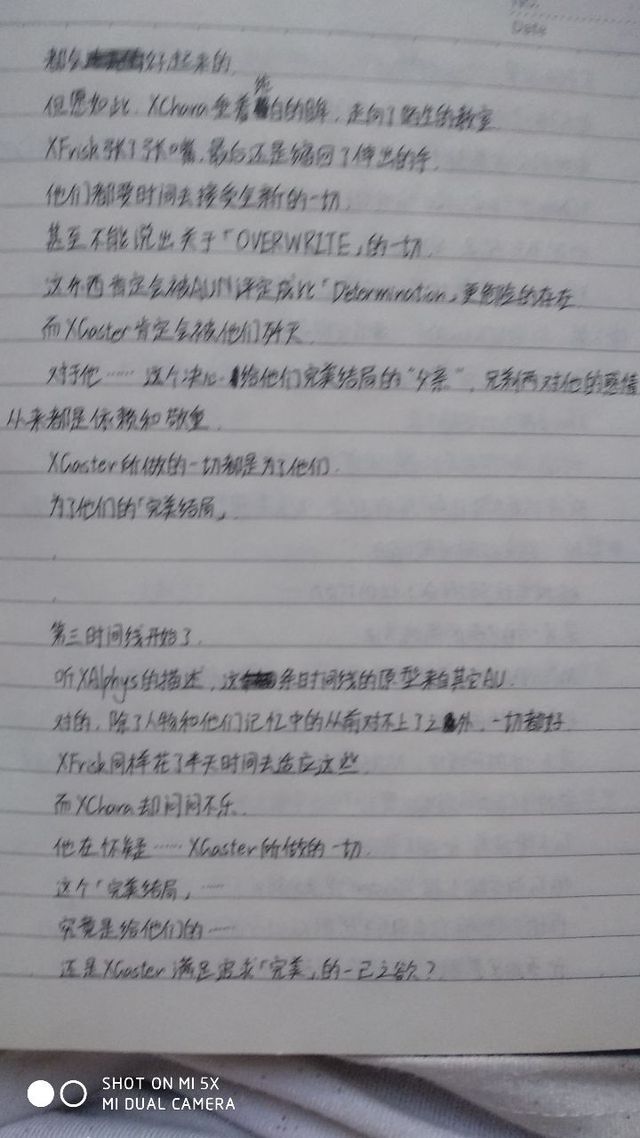 Date
都会好起来的.
但愿如此. XChara垂着纯白的眸, 走向了陌生的教室.
XFrisk张了张嘴, 最后还是缩回了伸出的手.
他们都要时间去接受全新的一切.
甚至不能说出关于「OVERWRITE」的一切.
这东西肯定会被AU们评定成比「Determination」更危险的存在.
而XGaster肯定会被他们歼灭.
对于他……这个决心给他们完美结局的“父亲”, 兄弟俩对他的感情
从来都是依赖和敬重.
XGaster所做的一切都是为了他们.
为了他们的「完美结局」
.
.
第三时间线开始了.
听XAlphys的描述, 这条时间线的原型来自其它AU.
对的, 除了人物和他们记忆中的从前对不上了之外, 一切都好.
XFrisk同样花了半天时间去适应这些.
而XChara却闷闷不乐.
他在怀疑……XGaster所做的一切.
这个「完美结局」……
究竟是给他们的……
还是XGaster满足追求「完美」的一己之欲?
SHOT ON MI 5X
MI DUAL CAMERA